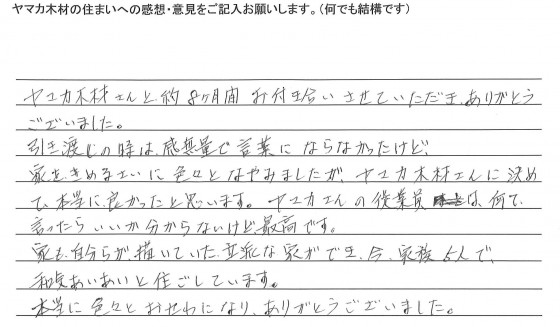 ヤマカ木材の住まいへの感想・意見をご記入お願いします。(何でも結構です)
ヤマカ木材さんと約8ヶ月間お付き合いさせていただき、ありがとう
ございました。
引き渡しの時は、感無量で言葉にならなかったけど、
家をきめるまでに色々となやみましたが、ヤマカ木材さんに決め
て、本当に良かったと思います。ヤマカさんの従業員は、何て
言ったらいいか分からないけど、最高です。
家も、自分らが描いていた立派な家ができ、今、家族5人で、
和気あいあいと住ごしています。
本当に色々とおせわになり、ありがとうございました。